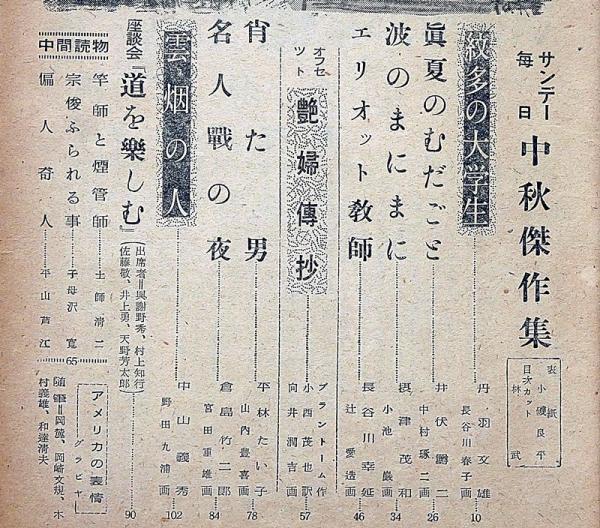 サンデー毎日 中秋傑作集
表紙 小磯良平
目次カット 林武
紋多の大学生 丹羽文雄 長谷川春子画 10
眞夏のむだごと 井伏鱒二 中村琢二画 26
波のまにまに 摂津茂和 小池巌画 34
エリオット敎師 長谷川幸延 辻愛造画 46
オフセツト 艶婦傳抄 ブラントーム作 小西茂也訳 向井潤吉画 57
肖た男 平林たい子 山内豊喜画 78
名人戰の夜 倉島竹二郎 宮田重雄画 84
雲烟の人 中山義秀 野田九浦画 102
座談会『道を樂しむ』(出席者=與謝野秀、村上知行、佐藤敬、井上勇、天野芳太郎) 90
中間読物
竿師と煙管師 土師淸二
宗俊ふられる事 子母沢寛
偏人奇人 平山芦江
65
アメリカの表情 グラビヤ
随筆=岡鹿、岡崎文規、木村義雄、和達淸夫